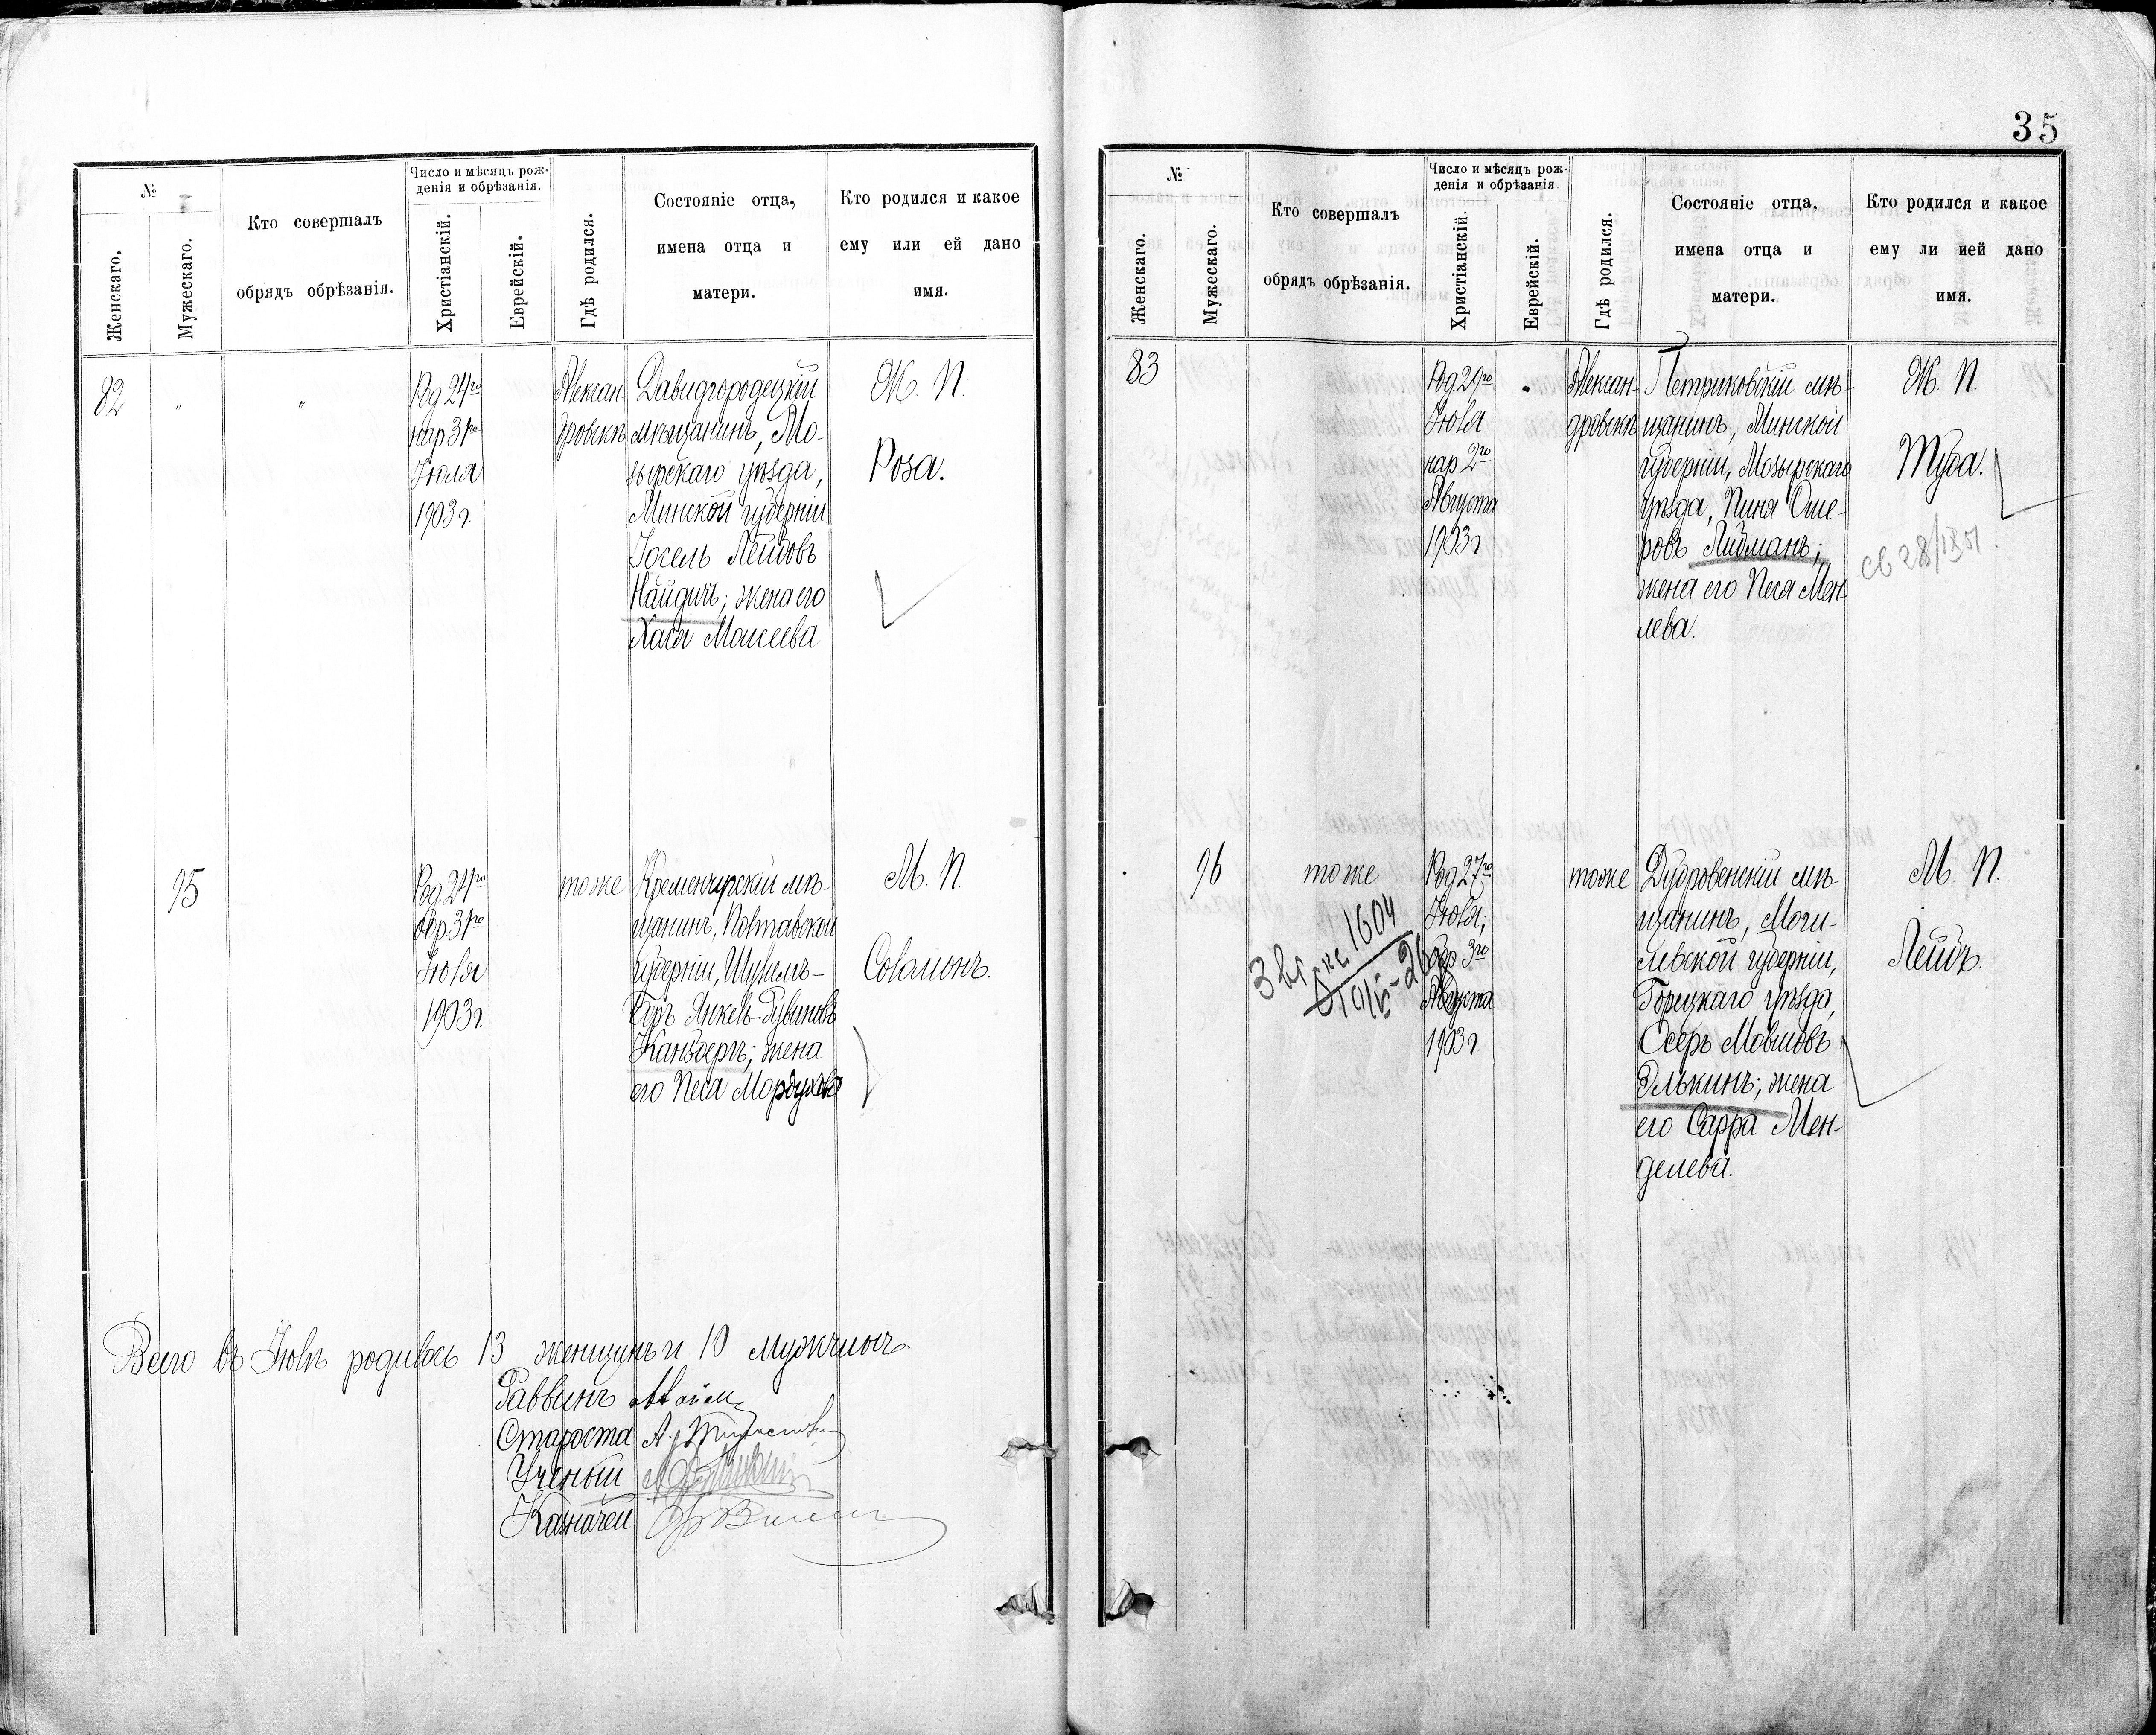 35
№
Женскаго.
Мужескаго.
Кто совершалъ
обрядъ обрѣзанія.
Число и мѣсяцъ рож-
денія и обрѣзанія.
Христіанскій.
Еврейскій.
Гдѣ родился.
Состояніе отца,
имена отца и
матери.
Кто родился и какое
ему или ей дано
имя.
82
"
"
Род. 24го
нар 31го
Іюля
1903 г.
Алексан-
дровскъ
Давидгородецкій
мѣщанинъ, Мо-
зырскаго уѣзда,
Минской губерніи
Іосель Лейбовъ
Найдичъ; жена его
Хася Моисеева
Ж. П.
Роза.
95
Род. 24го
обр 31го
Іюля
1903 г.
тоже
Кременчугскій мѣ-
щанинъ, Полтавской
губерніи, Шулимъ-
Беръ Янкель-Рувиновъ
; жена
его Песя Мордухова
М. П.
Соломонъ.
Всего въ Іюлѣ родилось 13 женщинъ и 10 мужчинъ.
Раввинъ
Староста А.
Ученый
Казначей
№
Женскаго.
Мужескаго.
Кто совершалъ
обрядъ обрѣзанія.
Число и мѣсяцъ рож-
денія и обрѣзанія
Христіанскій.
Еврейскій.
Гдѣ родился.
Состояніе отца,
имена отца и
матери.
Кто родился и какое
ему ли ией дано
имя.
83
Род. 29го
Іюля
нар 2го
Августа
1903 г
Алексан-
дровскъ
Петриковскій мѣ-
щанинъ, Минской
губерніи, Мозырскаго
уѣзда, Пиня Оше-
ровъ Либманъ;
жена его Песя Мен-
лева.
Ж. П.
Туба.
св 28/IX 51.
96
тоже
1604
Род 27го
Іюля;
обр 3го
Августа
1903 г.
тоже
Дубровенскій мѣ-
щанинъ, Моги-
левской губерніи,
Горецкаго уѣзда,
Осеръ Мовшовъ
Элькинъ; жена
его Сарра Мен-
делева.
М. П.
Лейбъ.